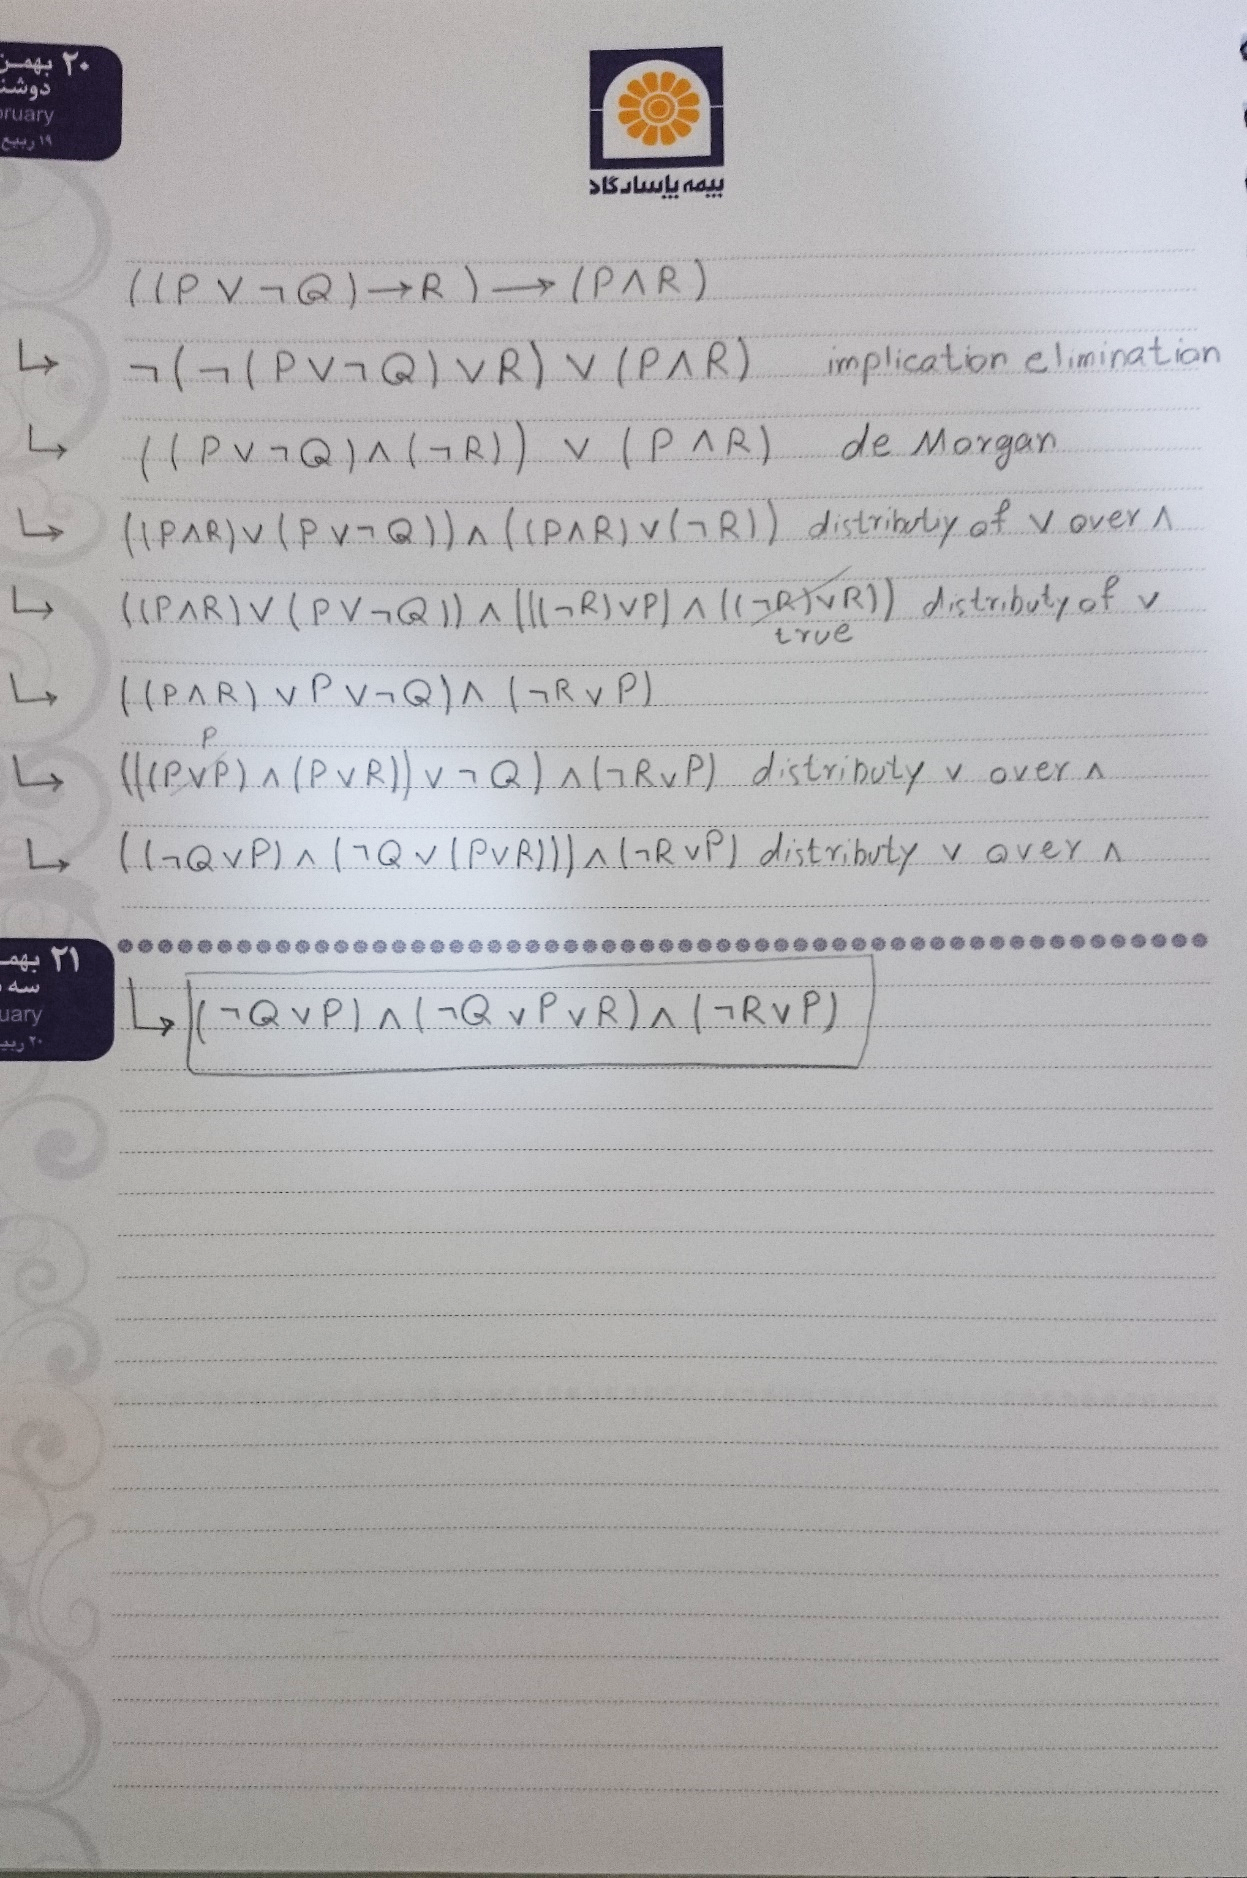 ۲۰ بهمن
دوشنبه
bruary
۱۹ ربیع
بیمه پاسارگاد
((P ∨ ¬Q) → R) → (P ∧ R)
↳ ¬(¬(P ∨ ¬Q) ∨ R) ∨ (P ∧ R) implication elimination
↳ ((P ∨ ¬Q) ∧ (¬R)) ∨ (P ∧ R) de Morgan
↳ ((P ∧ R) ∨ (P ∨ ¬Q)) ∧ ((P ∧ R) ∨ (¬R)) distributiy of ∨ over ∧
↳ ((P ∧ R) ∨ (P ∨ ¬Q)) ∧ (((¬R) ∨ P) ∧ ((¬R) ∨ R)) distributy of ∨
true
↳ ((P ∧ R) ∨ P ∨ ¬Q) ∧ (¬R ∨ P)
P
↳ (((P ∨ P) ∧ (P ∨ R)) ∨ ¬Q) ∧ (¬R ∨ P) distributy ∨ over ∧
↳ ((¬Q ∨ P) ∧ (¬Q ∨ (P ∨ R))) ∧ (¬R ∨ P) distributy ∨ over ∧
۲۱ بهم
سه
uary
۲۰ ربیع
↳ (¬Q ∨ P) ∧ (¬Q ∨ P ∨ R) ∧ (¬R ∨ P)